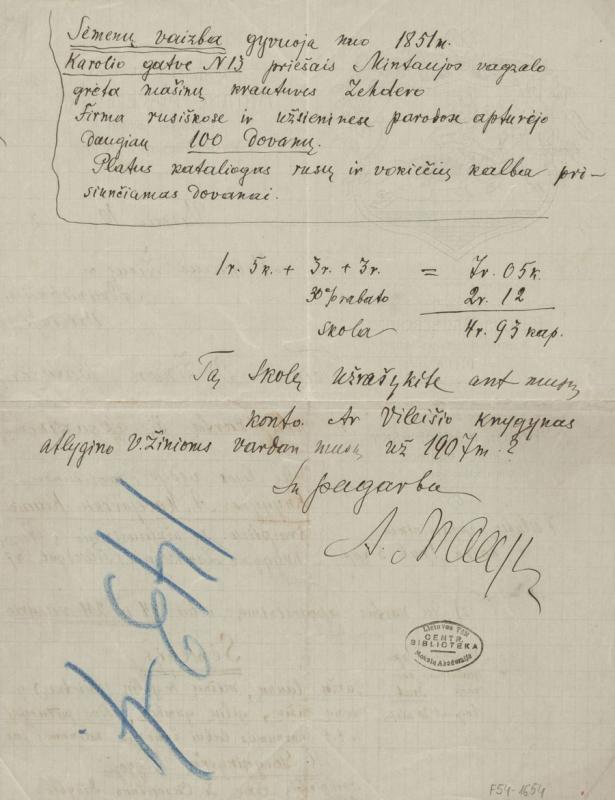 Sėmenų vaizba gyvuoja nuo 1851 m.
Karolio gatvė N 13 priešais Mintaujos vagzalo
grėta mašinų krautuves Zehdero
Firma rusiškose ir užsieninese parodose apturėjo
daugiau 100 dovanų.
Platus kataliogas rusų ir vokiečių kalba pri-
siunčiamas dovanai.
1 r. 5 k. + 3 r. + 3 r. = 7 r. 05 k.
30% rabato 2 r. 12
skola 4 r. 93 kap.
Tą skolę užrašykite ant musų
konto. Ar Vileišio knygynas
atlygino V. Žinioms vardan musų už 1907 m.?
Su pagarba
Lietuvos TSR
CENTR.
BIBLIOTEKA
Mokslų Akademija
F54-1654